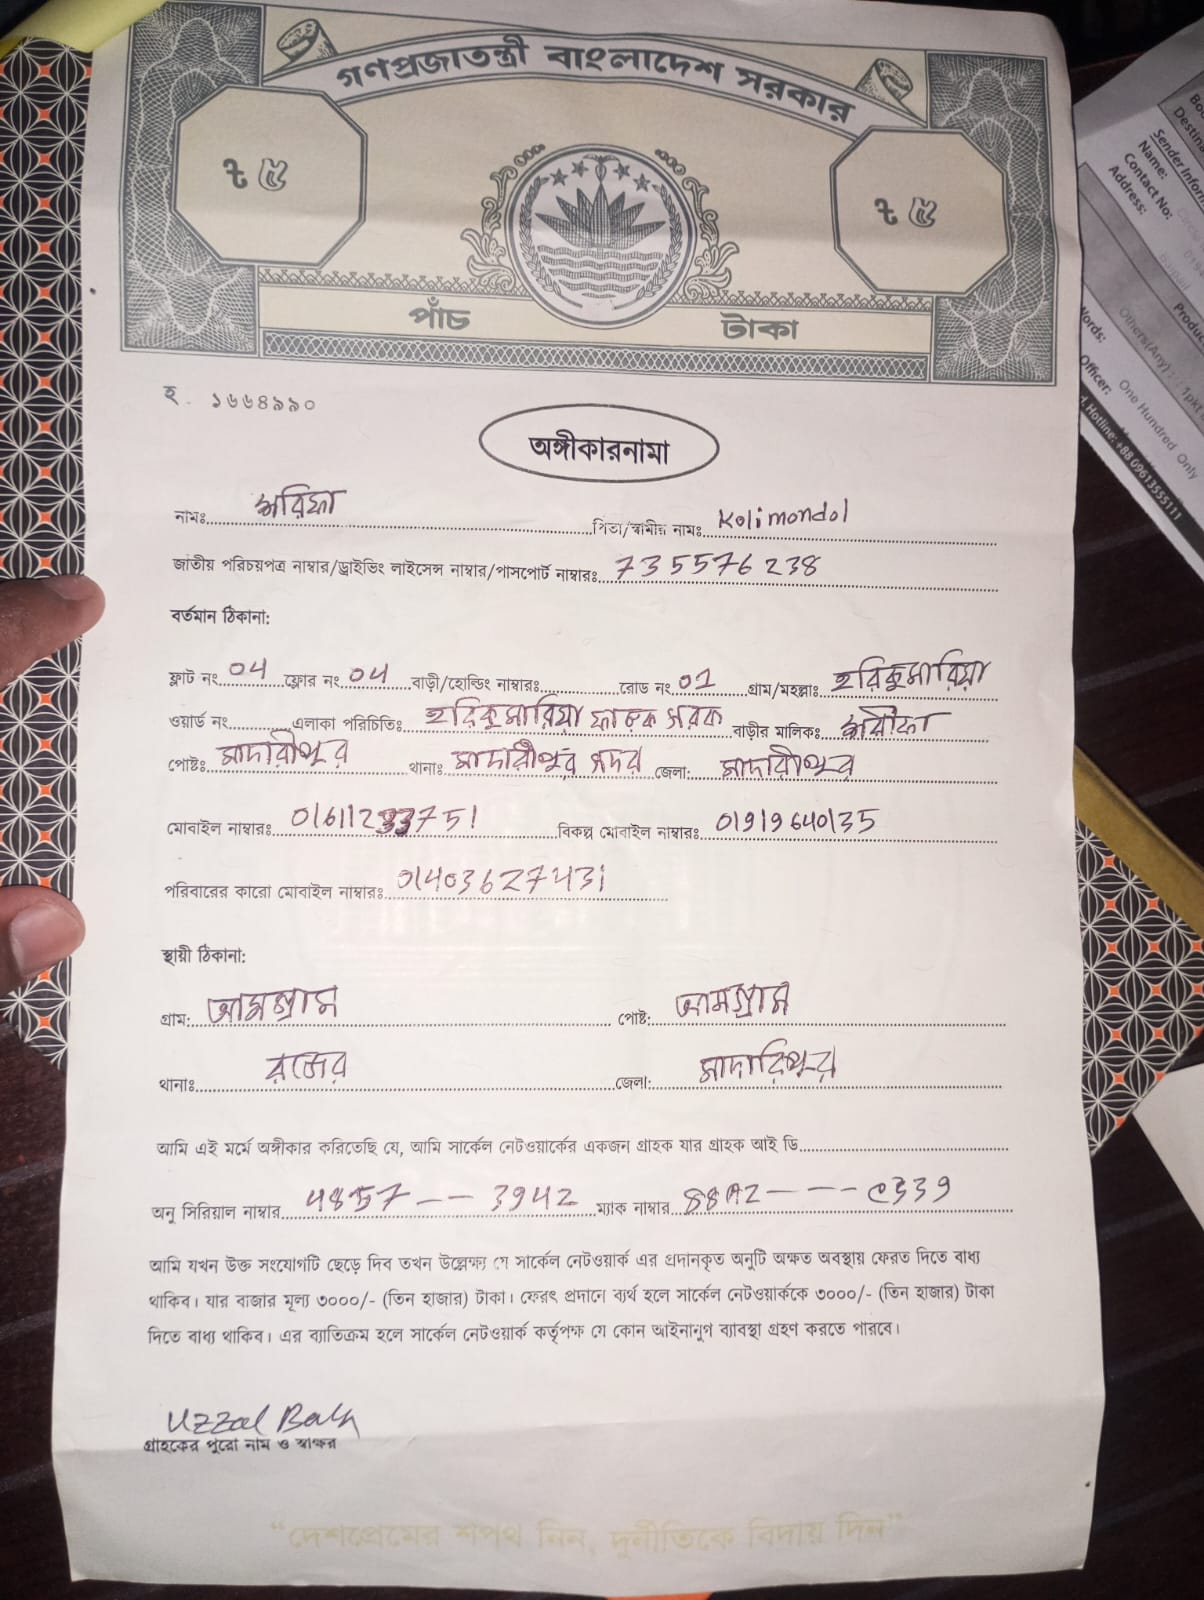 গণপ্রজাতন্ত্রী বাংলাদেশ সরকার
৳ ৫
৳ ৫
পাঁচ টাকা
হ. ১৬৬৪৯৯০
অঙ্গীকারনামা
নামঃ পিতা/স্বামীর নামঃ Kolimondol
জাতীয় পরিচয়পত্র নাম্বার/ড্রাইভিং লাইসেন্স নাম্বার/পাসপোর্ট নাম্বারঃ 735576238
বর্তমান ঠিকানা:
ফ্লাট নং 04 ফ্লোর নং 04 বাড়ী/হোল্ডিং নাম্বারঃ রোড নং 01 গ্রাম/মহল্লাঃ হরিকুমারিয়া
ওয়ার্ড নং এলাকা পরিচিতিঃ হরিকুমারিয়া সরক বাড়ীর মালিকঃ
পোষ্টঃ মাদারীপুর থানাঃ মাদারীপুর সদর জেলা: মাদারীপুর
মোবাইল নাম্বারঃ 01611233751 বিকল্প মোবাইল নাম্বারঃ 01919640135
পরিবারের কারো মোবাইল নাম্বারঃ 01403627431
স্থায়ী ঠিকানা:
গ্রাম: আমগ্রাম পোষ্ট: আমগ্রাম
থানাঃ জেলা: মাদারিপুর
আমি এই মর্মে অঙ্গীকার করিতেছি যে, আমি সার্কেল নেটওয়ার্কের একজন গ্রাহক যার গ্রাহক আই ডি
অনু সিরিয়াল নাম্বার 4857-- 3942 ম্যাক নাম্বার 88A2--- e339
আমি যখন উক্ত সংযোগটি ছেড়ে দিব তখন উল্লেক্ষ্য যে সার্কেল নেটওয়ার্ক এর প্রদানকৃত অনুটি অক্ষত অবস্থায় ফেরত দিতে বাধ্য
থাকিব। যার বাজার মূল্য ৩০০০/- (তিন হাজার) টাকা। ফেরৎ প্রদানে ব্যর্থ হলে সার্কেল নেটওয়ার্ককে ৩০০০/- (তিন হাজার) টাকা
দিতে বাধ্য থাকিব। এর ব্যাতিক্রম হলে সার্কেল নেটওয়ার্ক কর্তৃপক্ষ যে কোন আইনানুগ ব্যাবস্থা গ্রহণ করতে পারবে।
Uzzal
গ্রাহকের পুরো নাম ও স্বাক্ষর
"দেশপ্রেমের শপথ নিন, দুর্নীতিকে বিদায় দিন"
Sender
Name:
Contact No:
Address:
Others(Any) : : 1pk
Officer:
One Hundred Only
Hotline: +88 09613555111